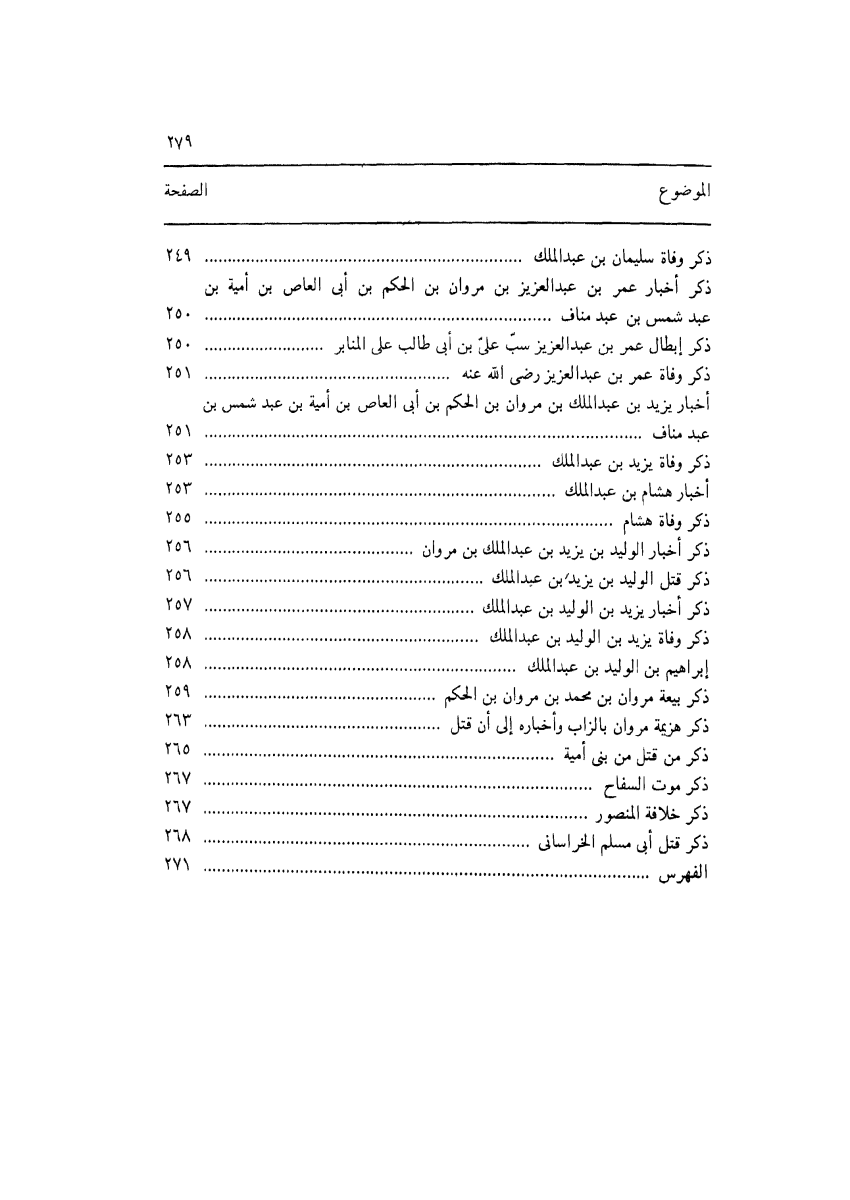 ٢٧٩
الموضوع الصفحة
ذكر وفاة سليمان بن عبدالملك ................ ٢٤٩
ذكر أخبار عمر بن عبدالعزيز بن مروان بن الحكم بن أبى العاص بن أمية بن
عبد شمس بن عبد مناف ................ ٢٥٠
ذكر إبطال عمر بن عبدالعزيز سبّ علىّ بن أبى طالب على المنابر ................ ٢٥٠
ذكر وفاة عمر بن عبدالعزيز رضى الله عنه ................ ٢٥١
أخبار يزيد بن عبدالملك بن مروان بن الحكم بن أبى العاص بن أمية بن عبد شمس بن
عبد مناف ................ ٢٥١
ذكر وفاة يزيد بن عبدالملك ................ ٢٥٣
أخبار هشام بن عبدالملك ................ ٢٥٣
ذكر وفاة هشام ................ ٢٥٥
ذكر أخبار الوليد بن يزيد بن عبدالملك بن مروان ................ ٢٥٦
ذكر قتل الوليد بن يزيد بن عبدالملك ................ ٢٥٦
ذكر أخبار يزيد بن الوليد بن عبدالملك ................ ٢٥٧
ذكر وفاة يزيد بن الوليد بن عبدالملك ................ ٢٥٨
إبراهيم بن الوليد بن عبدالملك ................ ٢٥٨
ذكر بيعة مروان بن محمد بن مروان بن الحكم ................ ٢٥٩
ذكر هزيمة مروان بالزاب وأخباره إلى أن قتل ................ ٢٦٣
ذكر من قتل من بنى أمية ................ ٢٦٥
ذكر موت السفاح ................ ٢٦٧
ذكر خلافة المنصور ................ ٢٦٧
ذكر قتل أبى مسلم الخراسانى ................ ٢٦٨
الفهرس ................ ٢٧١